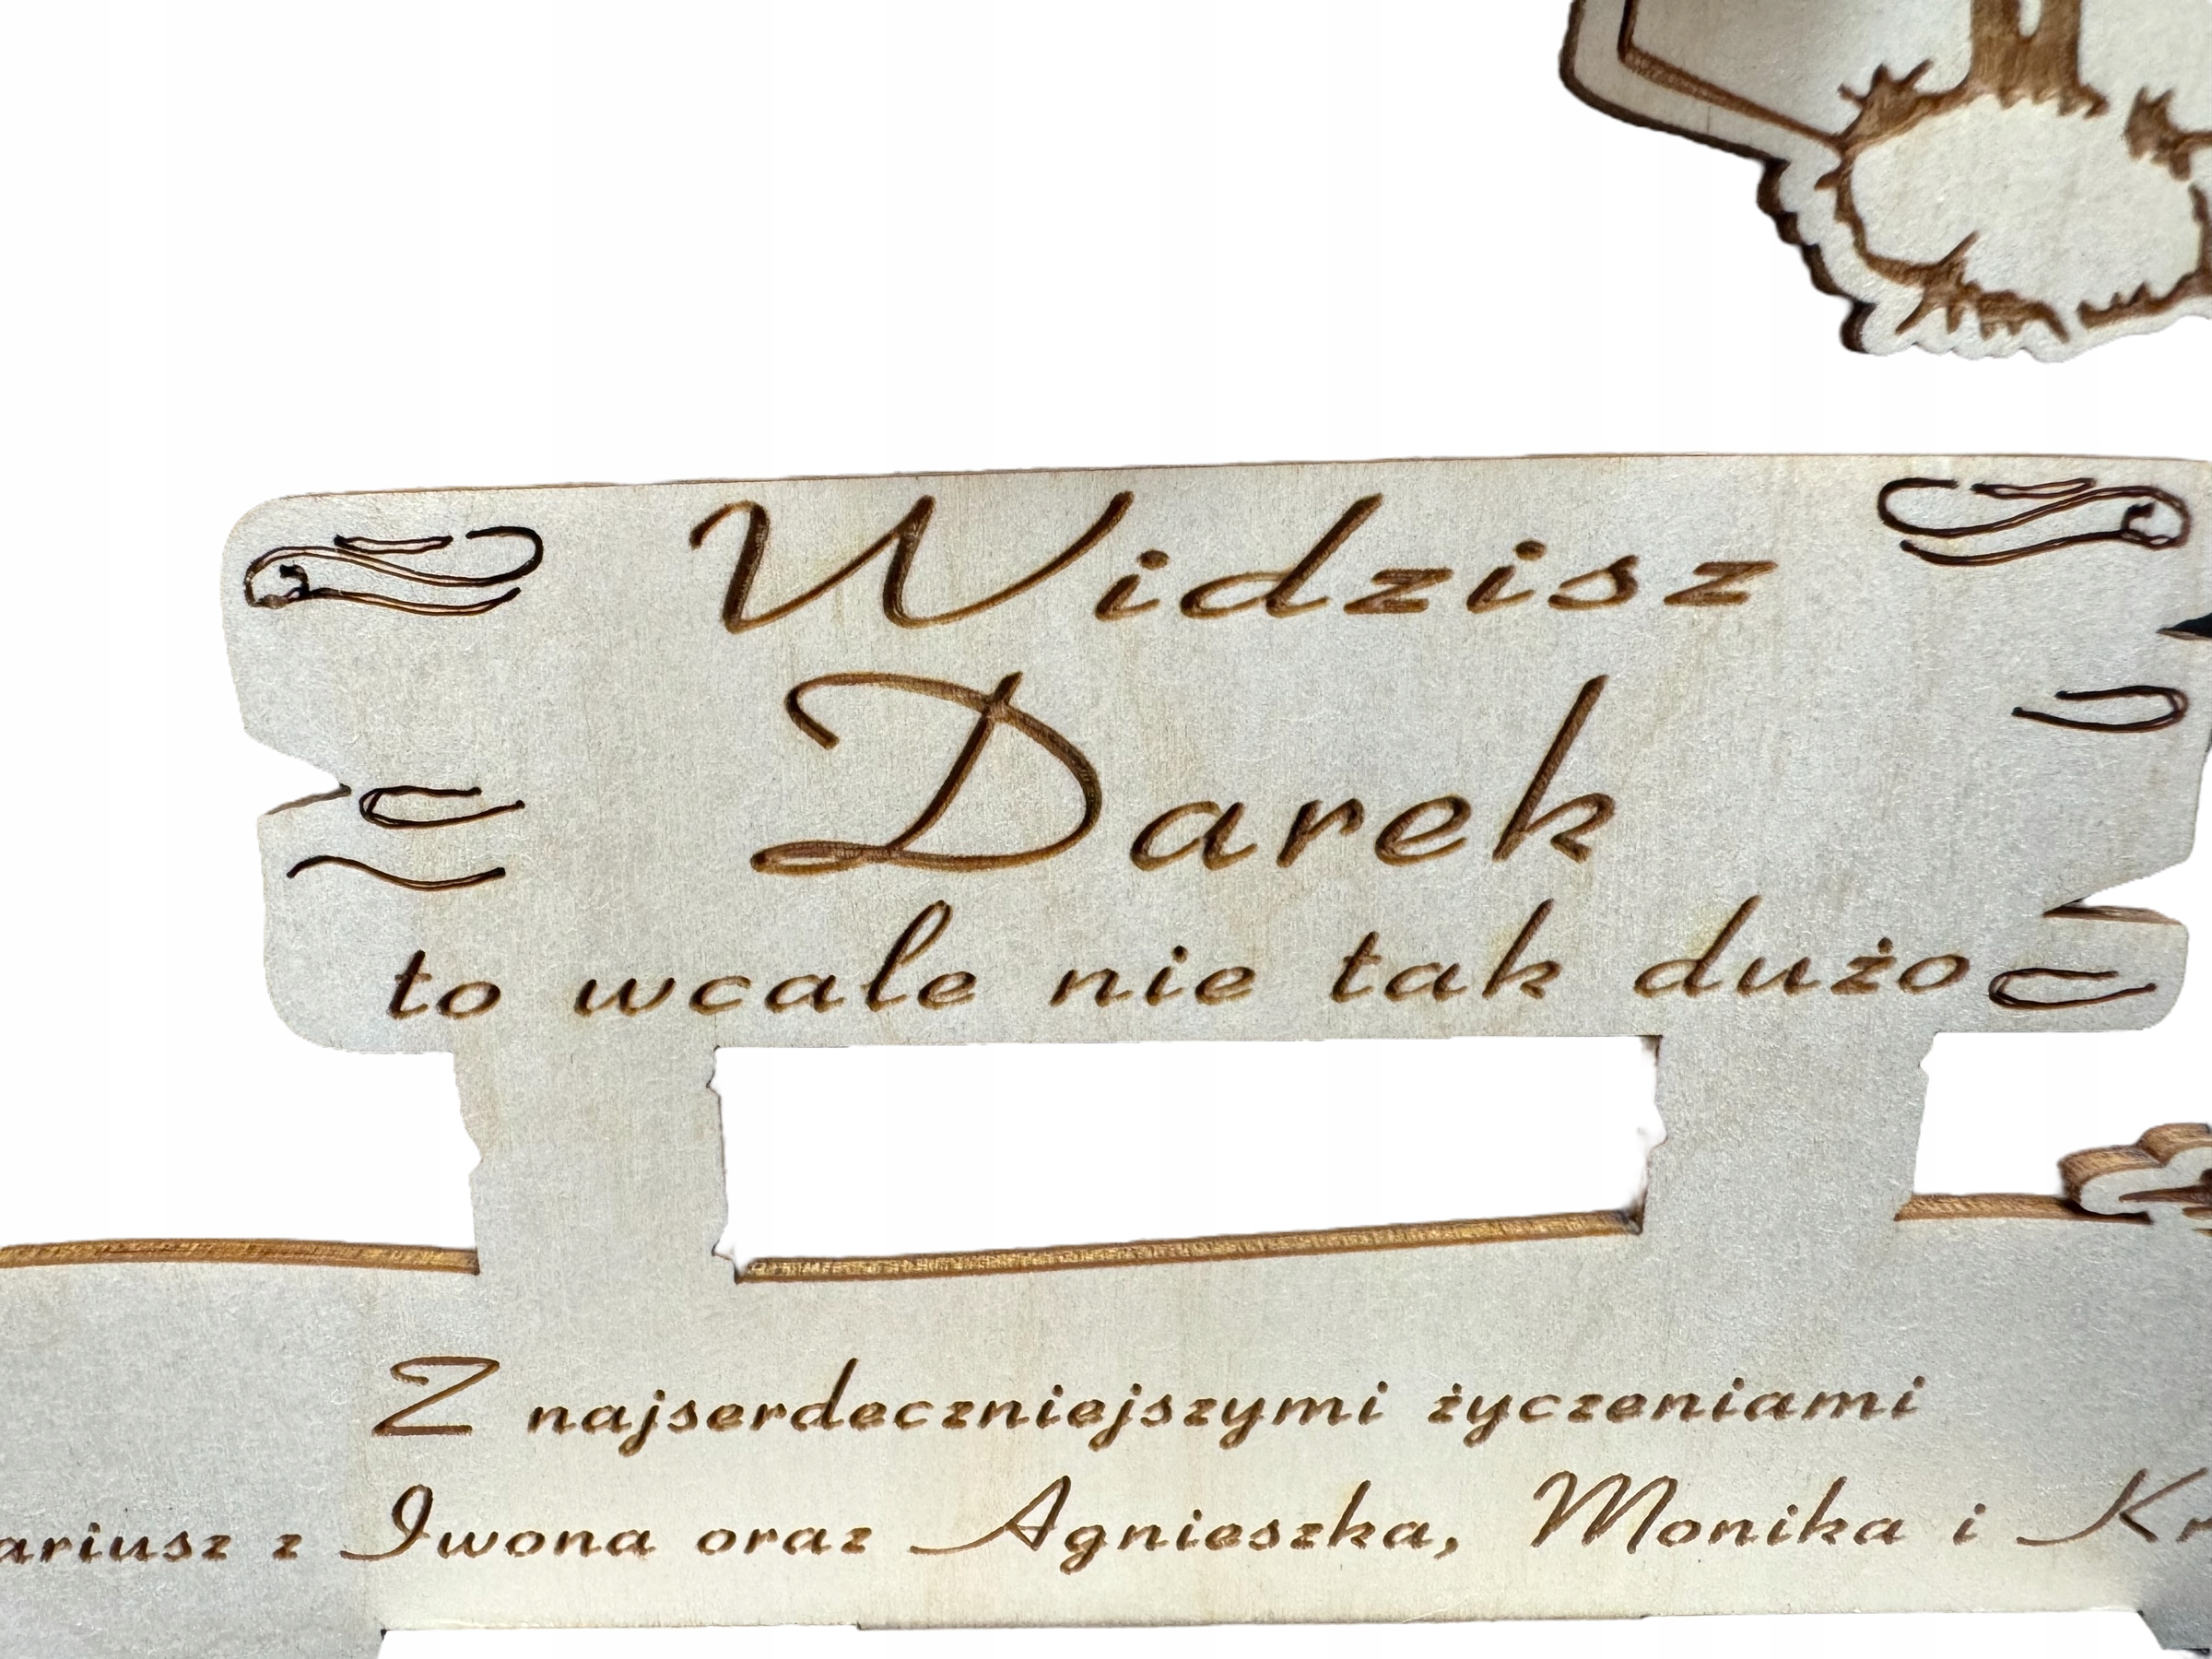 Widzisz
Darek
to wcale nie tak dużo
Z najserdeczniejszymi życzeniami
ariusz z Iwona oraz Agnieszka, Monika i Kr